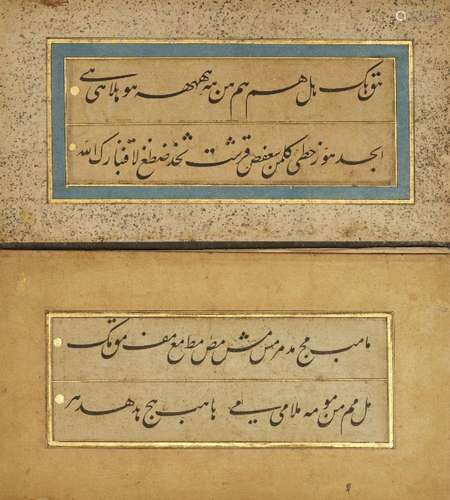 هق هک هل هم هم هن هه ههه هو هلا هی هے
ابجد هوز حطی کلمن سعفص قرشت ثخذ ضظغ لا فتبارک الله
ما مب مج مد مر مس مش مص مط مع مف مق مک
مل مم من مو مه ملا می مے ها هب هج هد هر